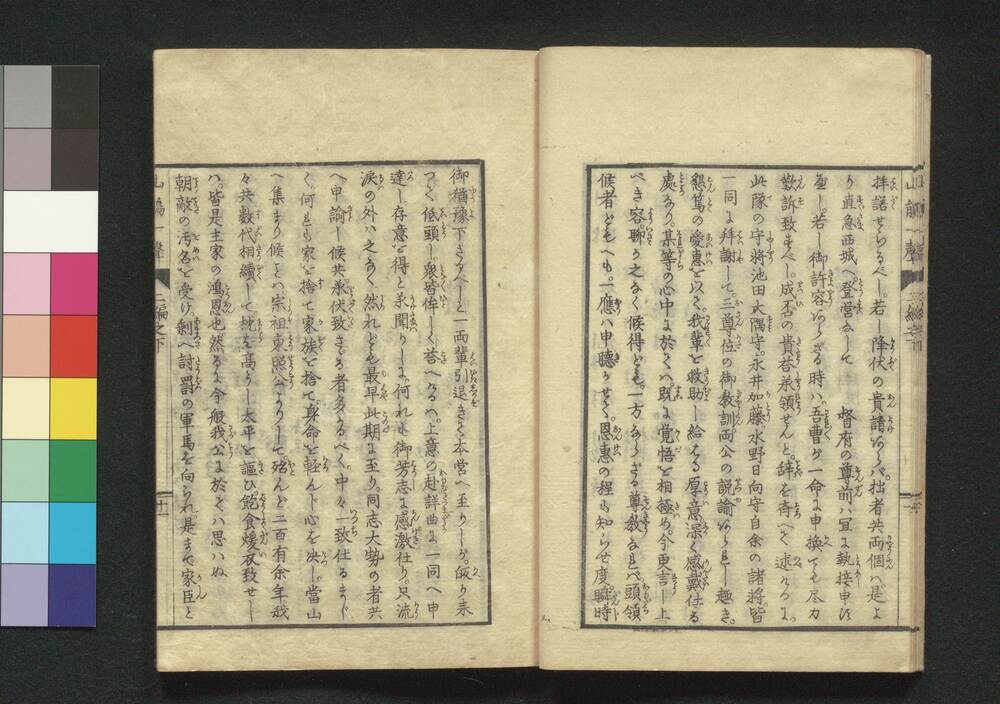 拝諾せらるべし。若し降伏の貴諾あらバ。拙者共両個ハ是よ
り直急西城へ登営なして　督府の尊前ハ冝に執接申ほ
若し御許容あらざる時ハ。吾曹が一命に申換ても尽力
歎訴致すべし。成否の貴答承領せんと。辞を
此隊の守将池田大隅守。永井加藤水野日向守自余の諸将皆
一同に拝謝して。三尊位の御教訓両公の説諭
懇篤の愛恵を以て。我輩を救助し給へる厚意深く感戴仕る
処なり。某等の心中に於てハ既に覚悟を相極め今更言上
べき容聊か之なく候得ども。一方ならざる尊教なれバ頭領
候者どもへも。一應ハ申聴かせて。恩恵の程も知らせ度。瞬時
御猶豫下さるべしと一両輩引退きて本営へ至りしが。皈り来
つゝ低頭し。衆皆侔しく答へるハ。上意の赴詳曲に一同へ申
達し存意を得と承聞りしに。何れも御芳志に感激仕り。只流
涙の外ハ之なく。然れども最早此期に至り。同志大勢の者共
へ申諭し候共承伏致さざる者多かるべく。中々一致仕るまじ
く何れも家を捨て家族を捨て。身命を軽んじ心を决し。當山
へ集まり候ことハ宗祖東照公よりして。殆んと二百有余年我
々共数代相續して枕を高うし太平を謳ひ飽食煖衣致せし
ハ。皆是主家の鴻恩也然るに今般我公に於てハ思ハぬ
朝敵の汚名を受け。剰へ討罰の軍馬を向られ是まで家臣と
二編之下